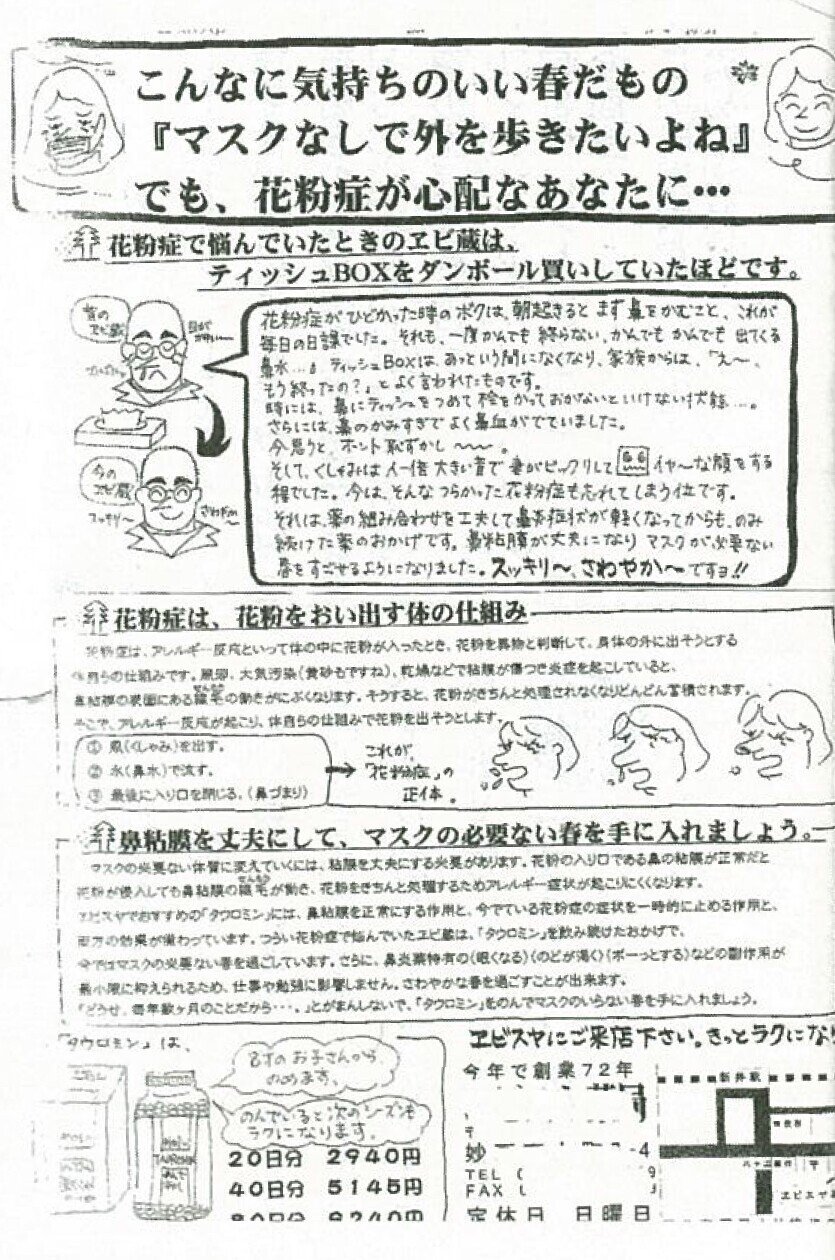 こんなに気持ちのいい春だもの
『マスクなしで外を歩きたいよね』
でも、花粉症が心配なあなたに…
花粉症で悩んでいたときのヱビ蔵は、
ティッシュBOXをダンボール買いしていたほどです。
昔のヱビ蔵
目がかゆい〜
花粉症がひどかった時のボクは、朝起きると まず鼻をかむこと、これが
毎日の日課でした。それも、一度かんでも 終らない、かんでも かんでも 出てくる
鼻水…。ティッシュBOXは、あっという間になくなり、家族からは、「え〜、
もう終ったの?」と よく言われたものです。
時には、鼻にティッシュをつめて栓をかっておかないといけない状態…。
さらには、鼻のかみすぎで よく鼻血がでていました。
今思うと、ホント恥ずかし〜〜〜。
そして、くしゃみは人一倍 大きい音で 妻がビックリして イヤ〜な顔をする
程でした。今は、そんな つらかった 花粉症も忘れてしまう位です。
それは、薬の組み合わせを工夫して鼻炎症状が軽くなってからも、のみ
続けた薬のおかげです。鼻粘膜が丈夫になり マスクが必要ない
春をすごせるようになりました。スッキリ〜、さわやか〜ですヨ!!
今のヱビ蔵
スッキリ〜
さわやか〜
花粉症は、花粉をおい出す体の仕組み
花粉症は、アレルギー反応といって体の中に花粉が入ったとき、花粉を異物と判断して、身体の外に出そうとする
体自らの仕組みです。風邪、大気汚染(黄砂もですね)、乾燥などで粘膜が傷つき炎症を起こしていると、
鼻粘膜の表面にある繊毛の働きがにぶくなります。そうすると、花粉がきちんと処理されなくなりどんどん蓄積されます。
そこで、アレルギー反応が起こり、体自らの仕組みで花粉を出そうとします。
① 風(くしゃみ)を出す。
② 水(鼻水)で流す。
③ 最後に入り口を閉じる。(鼻づまり)
これが、
「花粉症」の
正体。
鼻粘膜を丈夫にして、マスクの必要ない春を手に入れましょう。
マスクの必要ない体質に変えていくには、粘膜を丈夫にする必要があります。花粉の入り口である鼻の粘膜が正常だと
花粉が侵入しても鼻粘膜の繊毛が働き、花粉をきちんと処理するためアレルギー症状が起こりにくくなります。
ヱビスヤでおすすめの「タウロミン」には、鼻粘膜を正常にする作用と、今でている花粉症の症状を一時的に止める作用と、
両方の効果が備わっています。つらい花粉症で悩んでいたヱビ蔵は、「タウロミン」を飲み続けたおかげで、
今ではマスクの必要ない春を過ごしています。さらに、鼻炎薬特有の(眠くなる)(のどが渇く)(ボーっとする)などの副作用が
最小限に抑えられるため、仕事や勉強に影響しません。さわやかな春を過ごすことが出来ます。
「どうせ、毎年数ヶ月のことだから・・・。」とがまんしないで、「タウロミン」をのんでマスクのいらない春を手に入れましょう。
「タウロミン」は、
8才のお子さんから、
のめます。
のんでいると次のシーズンも
ラクになります。
20日分 2940円
40日分 5145円
80日分 9240円
ヱビスヤにご来店下さい。きっとラクになり
今年で創業72年
〒
妙
-4
TEL (
9
FAX (
定休日 日曜日
新井駅
ヱビスヤ